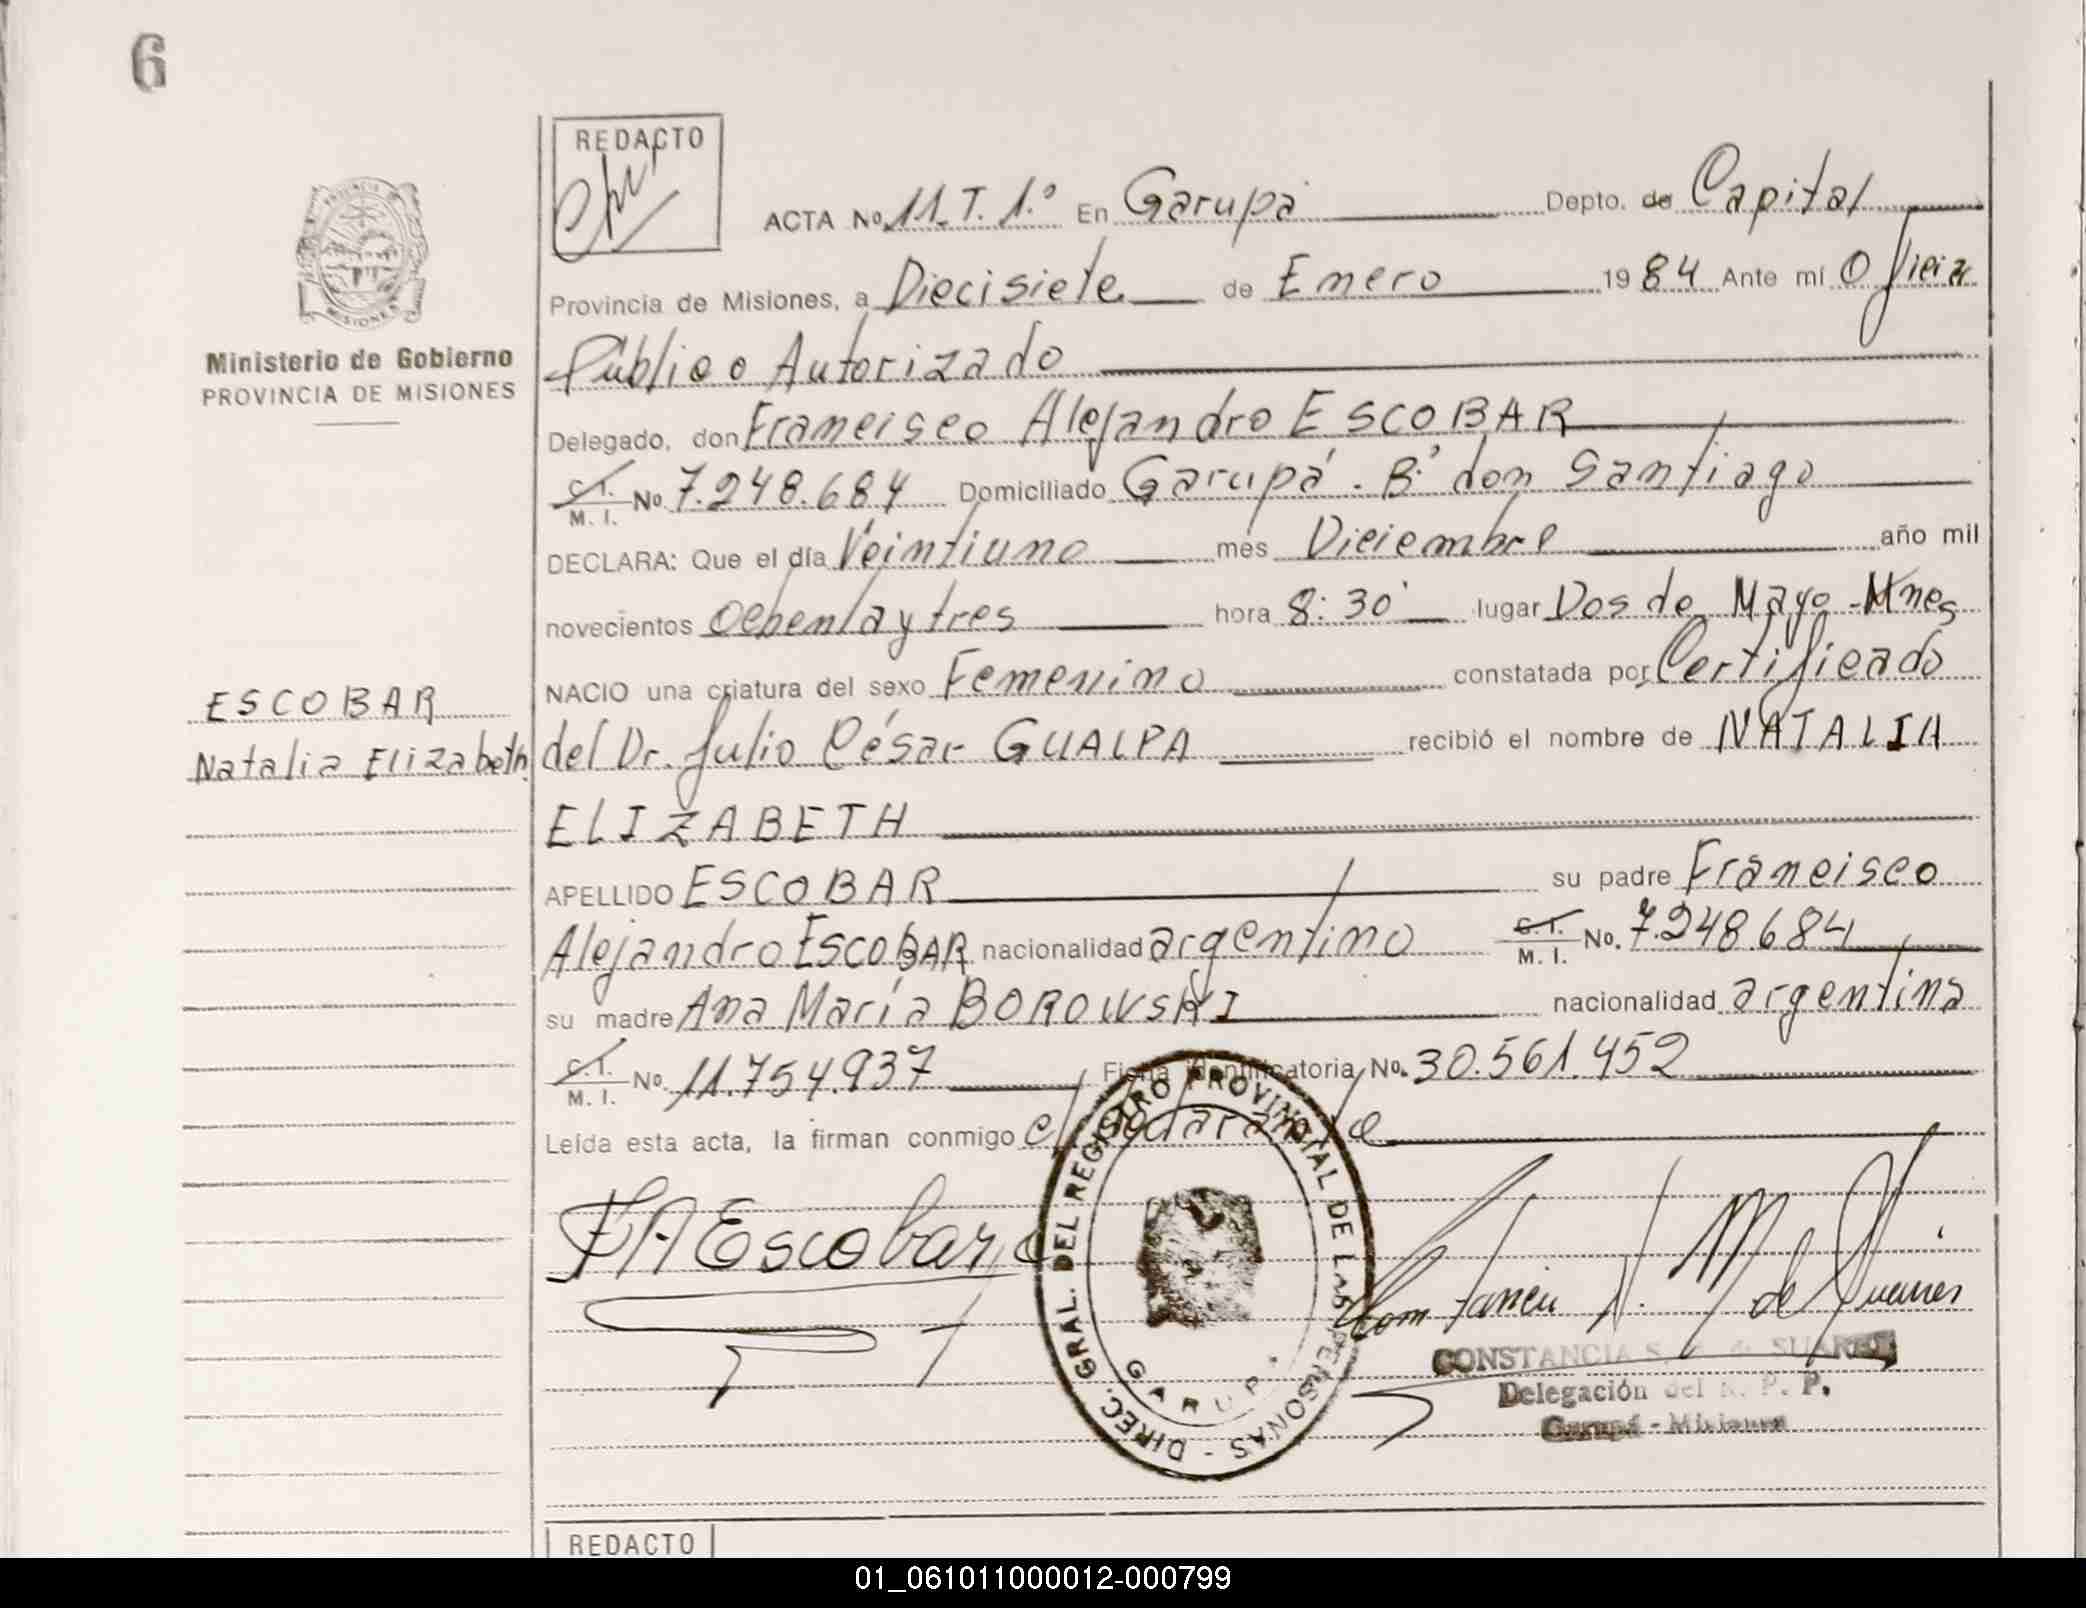 6
REDACTO
ACTA No. 11. T. 1.º En Garupá Depto. de Capital
Provincia de Misiones, a Diecisiete de Enero 1984 Ante mí Oficial
Público Autorizado
Delegado, don Francisco Alejandro ESCOBAR
C. I. / M. I. No. 7.248.684 Domiciliado Garupá. Bº don Santiago
DECLARA: Que el día Veintiuno mes Diciembre año mil
novecientos Ochenta y tres hora 8:30 lugar Dos de Mayo - Mnes
NACIO una criatura del sexo Femenino constatada por Certificado
del Dr. Julio César GUALPA recibió el nombre de NATALIA
ELIZABETH
APELLIDO ESCOBAR su padre Francisco
Alejandro ESCOBAR nacionalidad argentino C. I. / M. I. No. 7.248.684
su madre Ana María BOROWSKI nacionalidad argentina
C. I. / M. I. No. 11.754.937 Ficha identificatoria No. 30.561.452
Leída esta acta, la firman conmigo el declarante
PROVINCIA DE MISIONES
Ministerio de Gobierno
PROVINCIA DE MISIONES
ESCOBAR
Natalia Elizabeth
F A Escobar
DIREC. GRAL. DEL REGISTRO PROVINCIAL DE LAS PERSONAS -
GARUPA
CONSTANCIA S. de SUAREZ
Delegación del R. P. P.
Garupá - Misiones
REDACTO
01_061011000012-000799